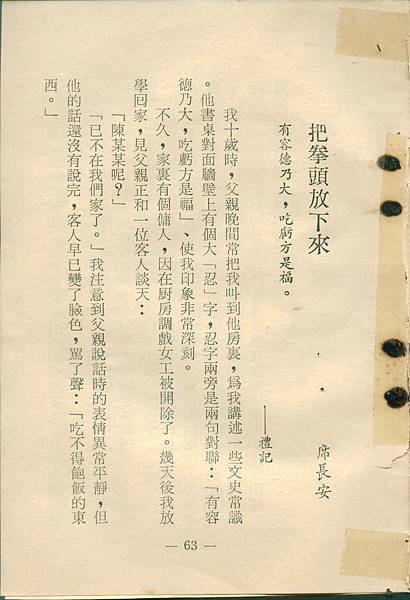 把拳頭放下來
席長安
有容德乃大，吃虧方是福。
——禮記
我十歲時，父親晚間常把我叫到他房裏，爲我講述一些文史常識
。他書桌對面牆壁上有個大「忍」字，忍字兩旁是兩句對聯：「有容
德乃大，吃虧方是福」、使我印象非常深刻。
不久，家裏有個傭人，因在厨房調戲女工被開除了。幾天後我放
學回家，見父親正和一位客人談天：
「陳某某呢？」
「已不在我們家了。」我注意到父親說話時的表情異常平靜，但
他的話還沒有說完，客人早已變了臉色，罵了聲：「吃不得飽飯的東
西。」
— 63 —